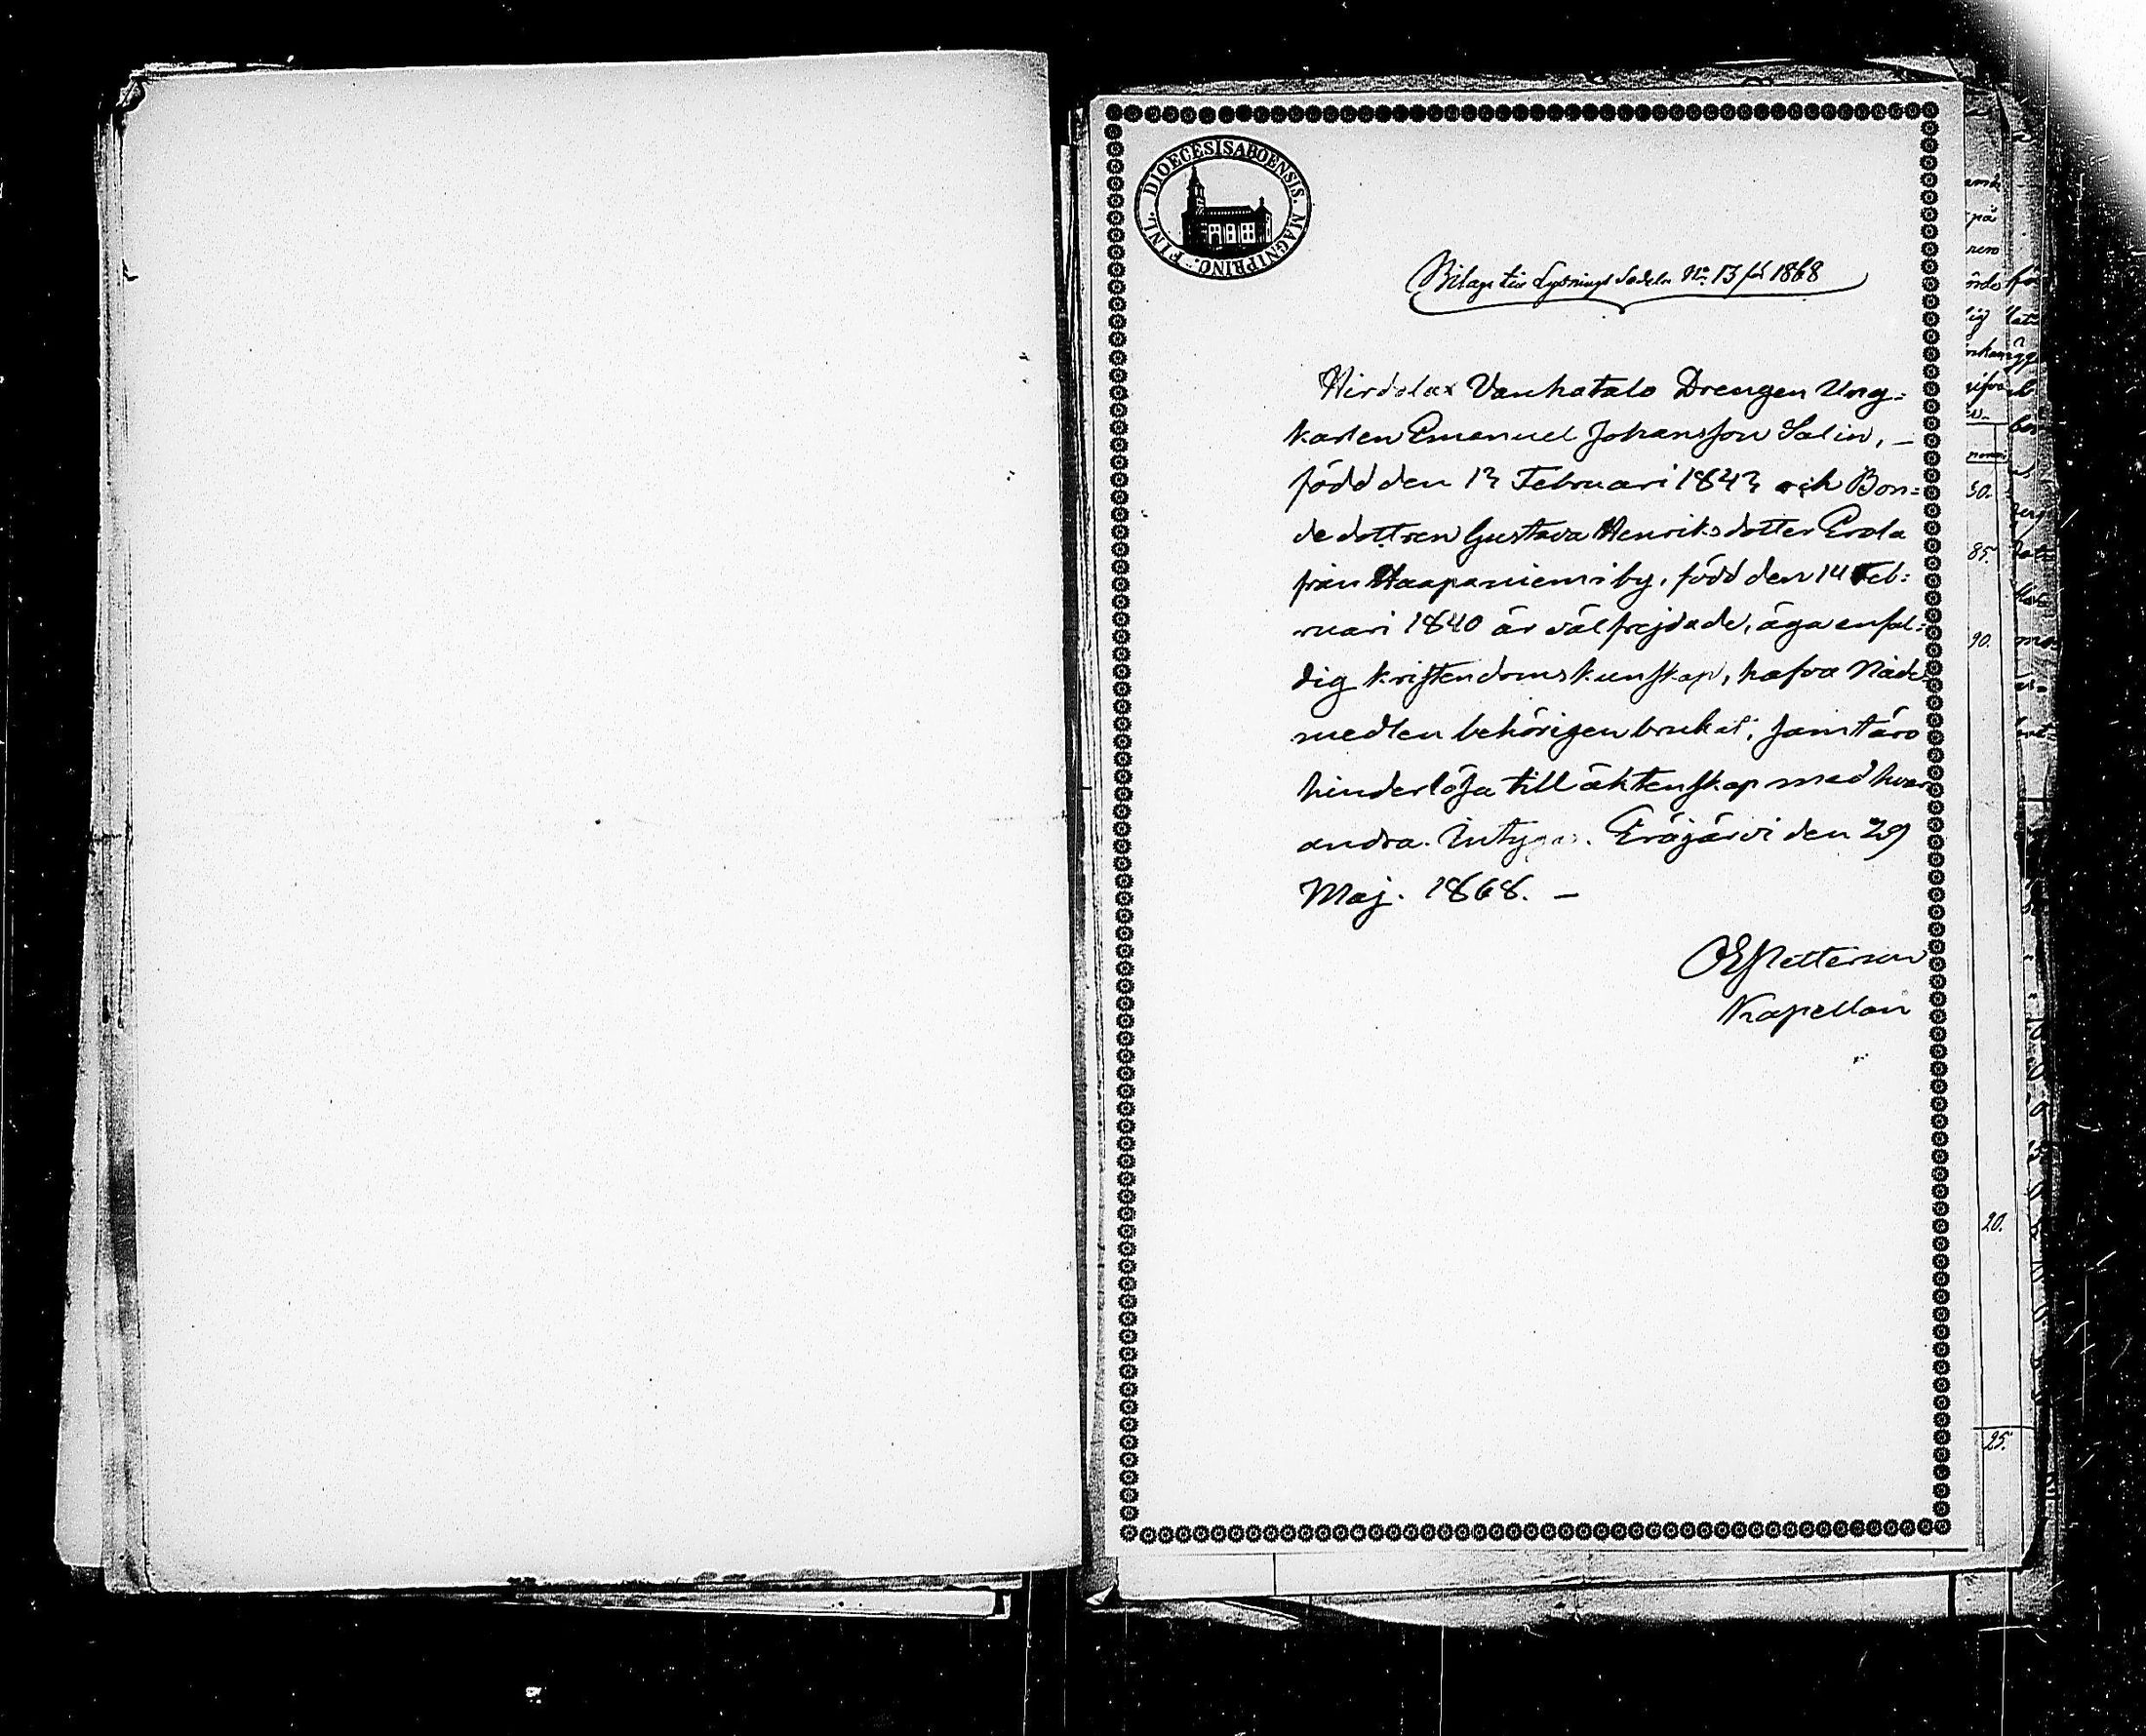 DIOECESIS ABOENSIS. MAGNIPRINC. FINL.
Bilaga till Lysnings Sedeln No 13 för 1868
Hirdolax Vanhatalo Drengen Ung=
karlen Emanuel Johansson Salin, –
född den 13 Februari 1843 och Bon=
de dottren Gustava Henriksdotter Erola
från Haapaniemi by, född den 14 Feb=
ruari 1840 är välfrejdade, äga enfal=
dig kristendomskunskap, hafva Nåde
medlen behörigen brukat, samt äro
hinderlösa till äktenskap med hvar
andra. Intygar. Eräjärvi den 29
Maj. 1868. –
Petterson
Kapellan
50.
85.
90.
20.
25.